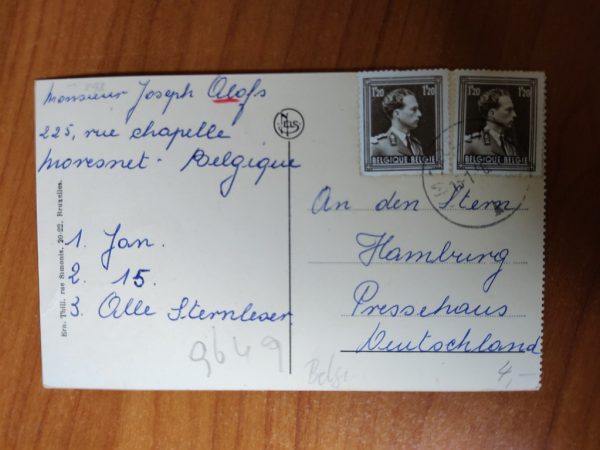 Monsieur Joseph Alofs
225, rue chapelle
Moresnet - Belgique
1. Jan.
2. 15.
3. Alle Sternleser.
9649
Ern. Thill, rue Simonis, 20-22, Bruxelles.
1F20 1F20
BELGIQUE-BELGIE
1F20 1F20
BELGIQUE-BELGIE
An den Stern
Hamburg
Pressehaus
Deutschland
Belgi
4,-